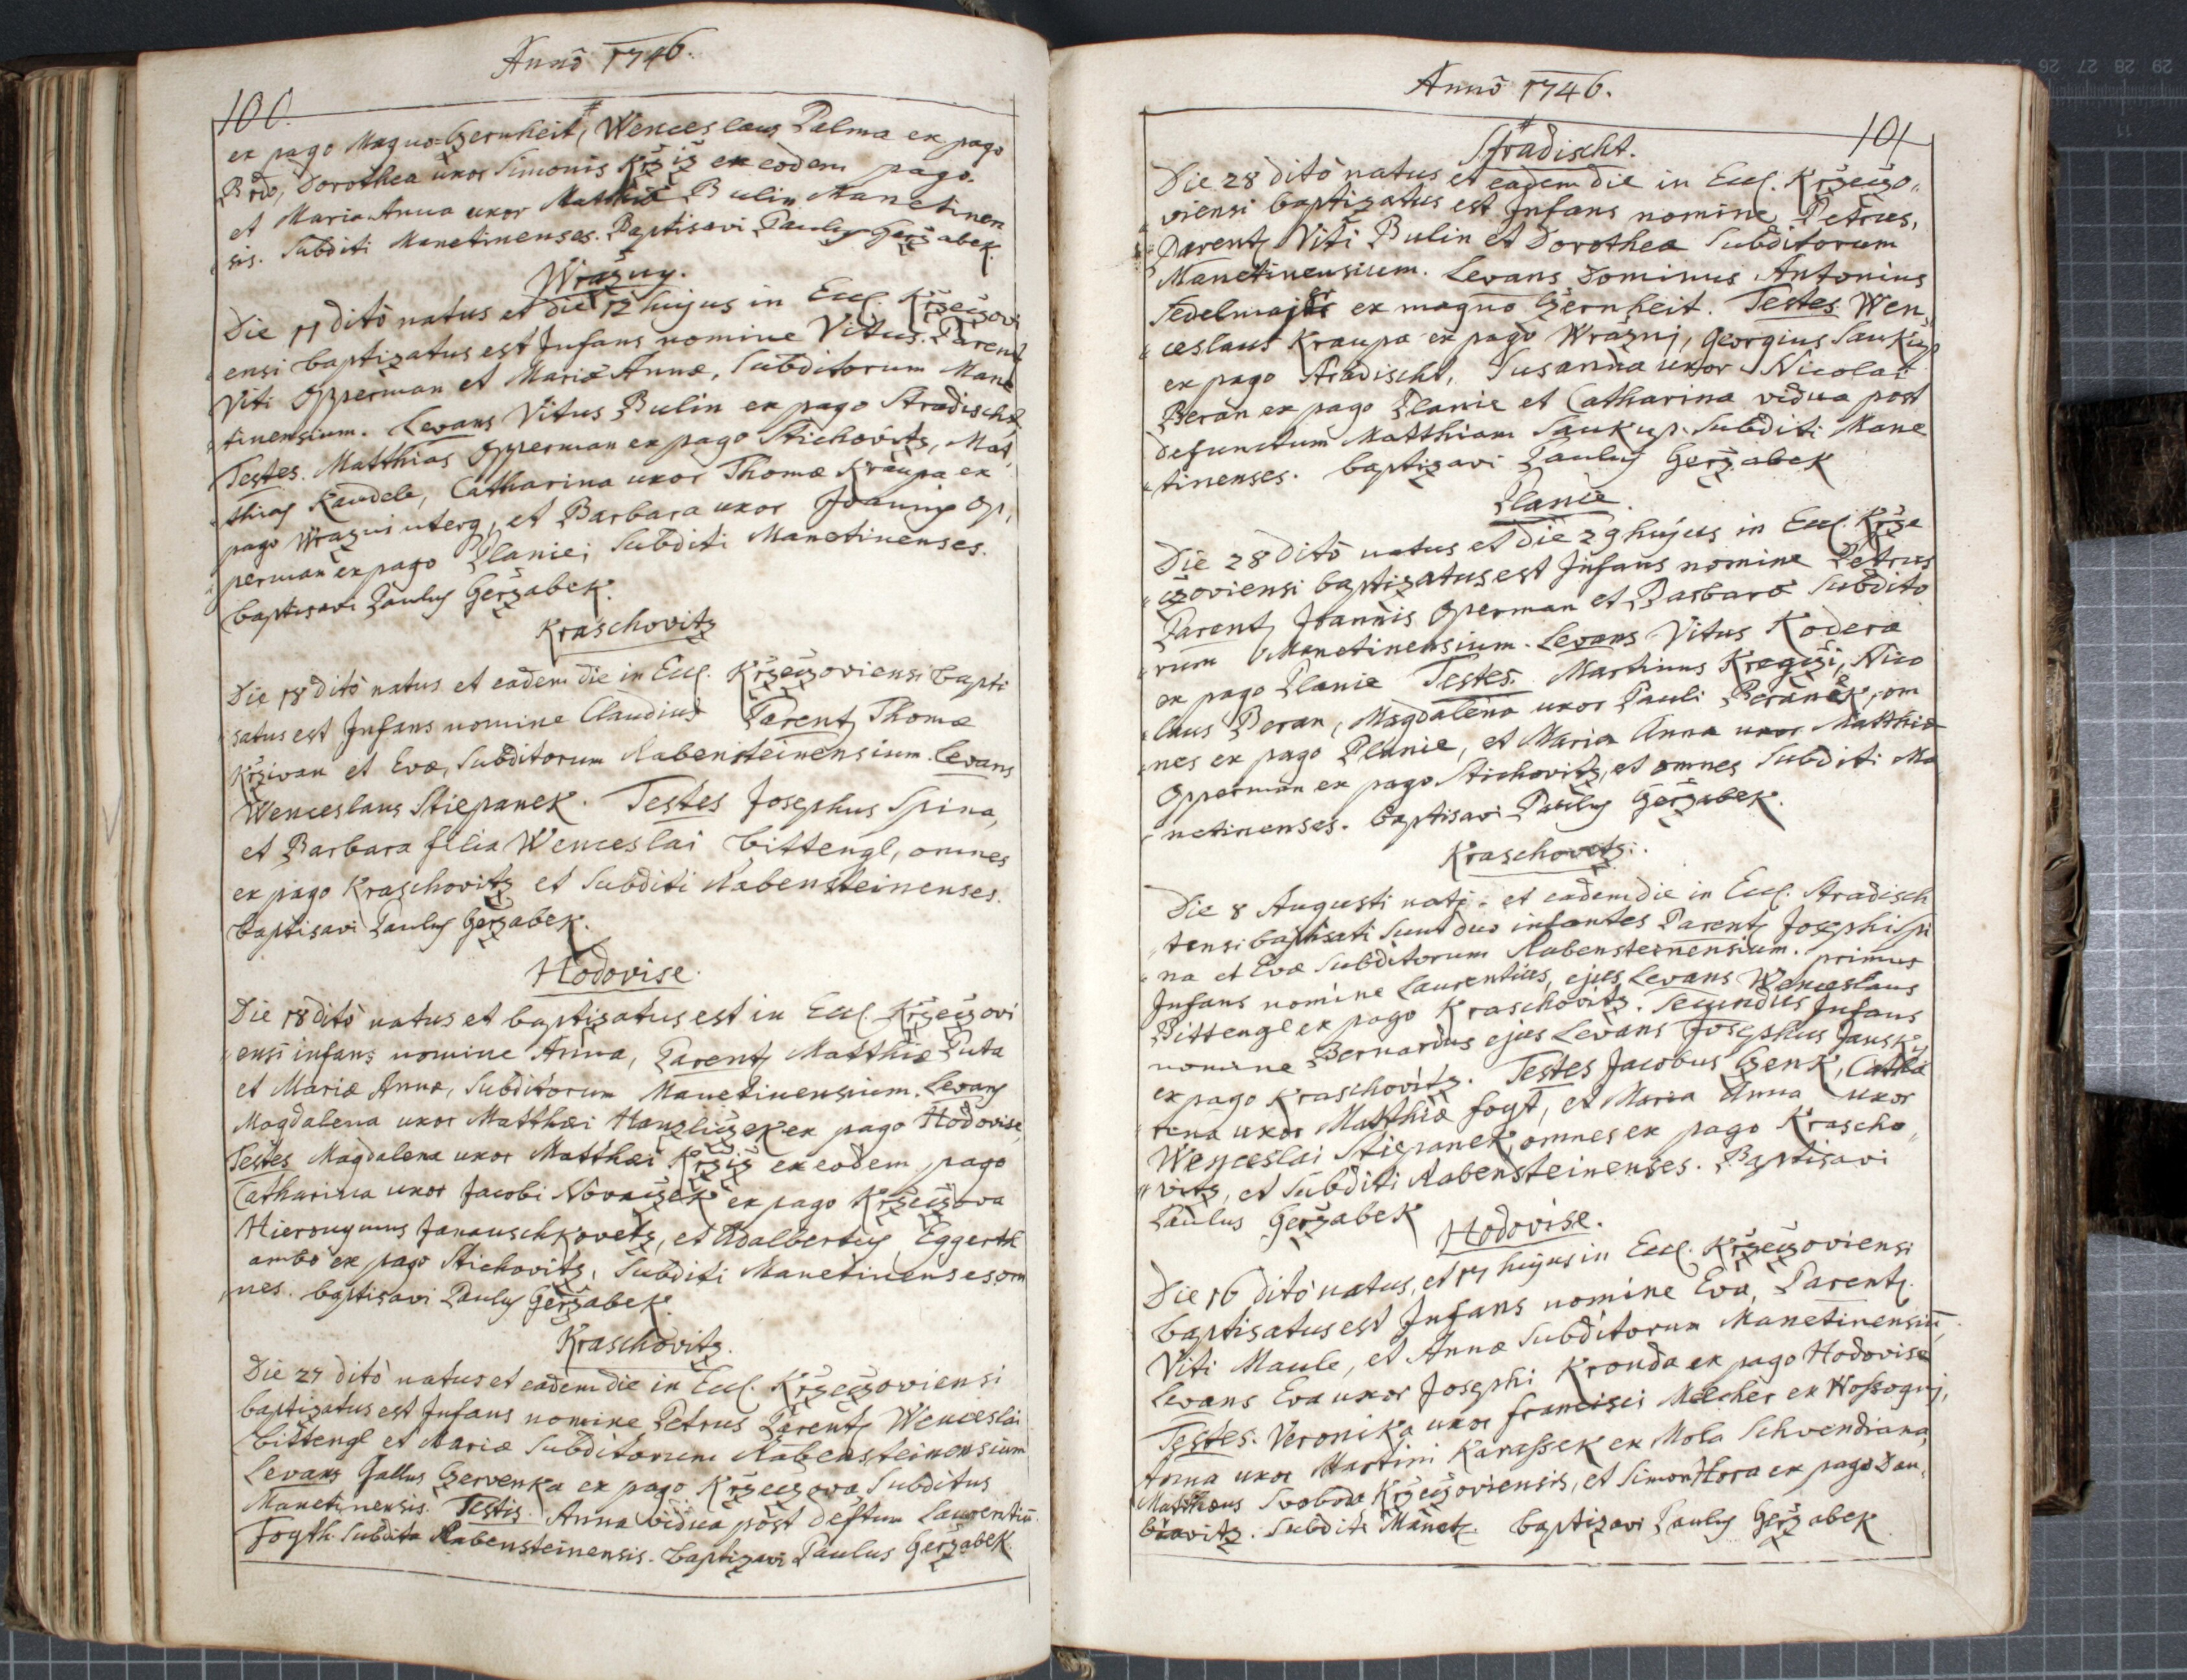 Annō 1746.
100.
ex pago Magno-Czernheit, Wenceslaus Palma ex pago
Brdo, Dorothea uxor Simonis Krziz ex eodem pago.
et Maria Anna uxor Matthiæ Bulin Manetinen
sis. Subditi Manetinenses. Baptisavi Paulus Gerzabek.
Wrazny.
Die 11 ditò natus et die 12 hujus in Eccl. Krzeczovi
ensi baptizatus est Infans nomine Vitus. Parent
Viti Opperman et Mariæ Annæ, Subditorum Mane
tinensium. Levans Vitus Bulin ex pago Stradischt
Testes. Matthias Opperman ex pago Stichovitz, Mat,
thias Kandele, Catharina uxor Thomæ Kraupa ex
pago Wrazni uterq, et Barbara uxor Joannis Op,
perman ex pago Planie; Subditi Manetinenses.
baptisavi Paulus Gerzabek.
Kraschovitz
Die 18 ditò natus et eadem die in Eccl. Krzeczoviensi bapti
satus est Infans nomine Claudius Parent Thomæ
Krzivan et Evæ, Subditorum Rabensteinensium. Levans
Wenceslaus Stiepanek. Testes Josephus Spina,
et Barbara filia Wenceslai bittengl, omnes
ex pago Kraschovitz et Subditi Rabensteinenses.
baptisavi Paulus Gerzabek.
Hodovise.
Die 18 ditò natus et baptizatus est in Eccl. Krzeczovi
ensi infans nomine Anna, Parent Matthiæ Puta
et Mariæ Annæ, Subditorum Manetinensium. Levans
Magdalena uxor Matthæi Hanzliczek ex pago Hodovise,
Testes Magdalena uxor Matthæi Krziz ex eodem pago
Catharina uxor Jacobi Novaczek ex pago Krzeczova
Hieronymus Janauschkovetz, et Adalbertus Eggerth
ambo ex pago Stichovitz, Subditi Manetinenses om
nes. baptisavi Paulus Gerzabek.
Kraschovitz.
Die 27 ditò natus et eadem die in Eccl. Krzeczoviensi
baptizatus est Infans nomine Petrus Parent Wenceslai
bittengl et Mariæ Subditorum Rabensteinensium
Levans Gallus Czervenka ex pago Krzeczova Subditus
Manetinensis. Testis. Anna vidua post deftum Laurentiū
Foyth Subdita Rabensteinensis. baptizavi Paulus Gerzabek.
Annō 1746.
101
Stradischt.
Die 28 ditò natus et eadem die in Eccl. Krzeczo,,
viensi baptizatus est Infans nomine Petrus,
Parent Viti Bulin et Dorotheæ Subditorum
Manetinensium. Levans Dominus Antonius
ex magno Czernheit. Testes Wen,
ceslaus Kraupa ex pago Wrazni, Georgius Saukup
ex pago Stradischt, Susanna uxor Nicolai
Beran ex pago Planie et Catharina vidua post
defunctum Matthiam Saukup. Subditi Mane
tinenses. baptizavi Paulus Gerzabek
Planie.
Die 28 ditò natus et die 29 hujus in Eccl. Krze
czoviensi baptizatus est Infans nomine Petrus
Parent Joannis Operman et Barbaræ Subdito
rum Manetinensium. Levans Vitus Kodera
ex pago Planie Testes. Martinus Kregczi, Nico
laus Beran, Magdalena uxor Pauli Beranek, om
nes ex pago Planie, et Maria Anna uxor Matthiæ
Opperman ex pago Stichovitz, et omnes Subditi Ma
netinenses. baptisavi Paulus Gerzabek.
Kraschovitz.
Die 8 Augusti nati et eadem die in Eccl. Stradisch
tensi baptisati sunt duo infantes Parent Josephi Spi
na et Evæ Subditorum Rabensteinensium. primus
Infans nomine Laurentius, ejus Levans Wenceslaus
Bittengl ex pago Kraschovitz. Secundus Infans
nomine Bernardus ejus Levans Josephus
ex pago Kraschovitz. Testes Jacobus Czenk, Catha
rena uxor Matthiæ foyt, et Maria Anna uxor
Wenceslai Stiepanek, omnes ex pago Krascho,,
vitz, et Subditi Rabensteinenses. Baptisavi
Paulus Gerzabek
Hodovise.
Die 16 ditò natus, et 17 hujus in Eccl. Krzeczoviensi
baptisatus est Infans nomine Eva, Parent
Viti Maule, et Annæ Subditorum Manetinensiū,
Levans Eva uxor Josephi Kronda ex pago Hodovise
Testes. Veronika uxor francisci Melcher ex Wossogny,
Anna uxor Martini Karassek ex Mola Schvendiana,
Matthæus Svoboda Krzeczoviensis, et Simon Hora ex pago Dau,
biavitz. Subditi Manet. baptizavi Paulus Gerzabek